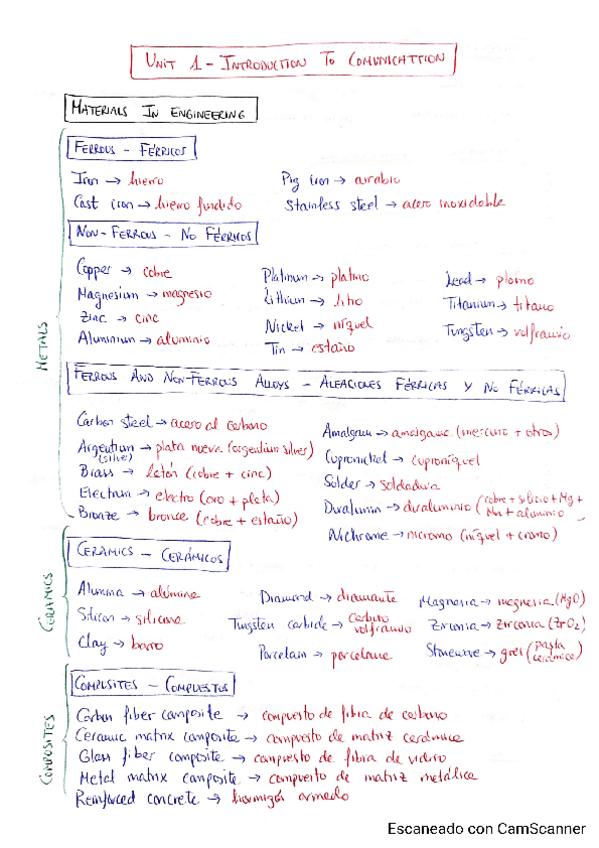 UNIT 1 - INTRODUCTION TO COMUNICATTION
MATERIALS IN ENGINEERING
METALS
FERROUS - FÉRRICOS
Iron → hierro
Pig iron → arrabio
Cast iron → hierro fundido
Stainless steel → acero inoxidable
NON-FERROUS - NO FÉRRICOS
Copper → cobre
Magnesium → magnesio
Zinc → cinc
Aluminium → aluminio
Platinum → platino
Lithium → litio
Nickel → níquel
Tin → estaño
Lead → plomo
Titanium → titanio
Tungsten → volframio
FERROUS AND NON-FERROUS ALLOYS - ALEACIONES FÉRRICAS Y NO FÉRRICAS
Carbon steel → acero al carbono
Argentium (silver) → plata nueva (argentium silver)
Brass → latón (cobre + cinc)
Electrum → electro (oro + plata)
Bronze → bronce (cobre + estaño)
Amalgam → amalgama (mercurio + otros)
Cupronickel → cuproníquel
Solder → soldadura
Duralumin → duraluminio (cobre + silicio + Mg + Mn + aluminio
Nichrome → nicromo (níquel + cromo)
CERAMICS
CERAMICS - CERÁMICOS
Alumina → alúmina
Silicon → silicona
Clay → barro
Diamond → diamante
Tungsten carbide → carburo volframio
Porcelain → porcelana
Magnesia → magnesia (MgO)
Zirconia → zirconia (ZrO2)
Stoneware → gres (pasta cerámica)
COMPOSITES
COMPOSITES - COMPUESTOS
Carbon fiber composite → compuesto de fibra de carbono
Ceramic matrix composite → compuesto de matriz cerámica
Glass fiber composite → compuesto de fibra de vidrio
Metal matrix composite → compuesto de matriz metálica
Reinforced concrete → hormigón armado
Escaneado con CamScanner